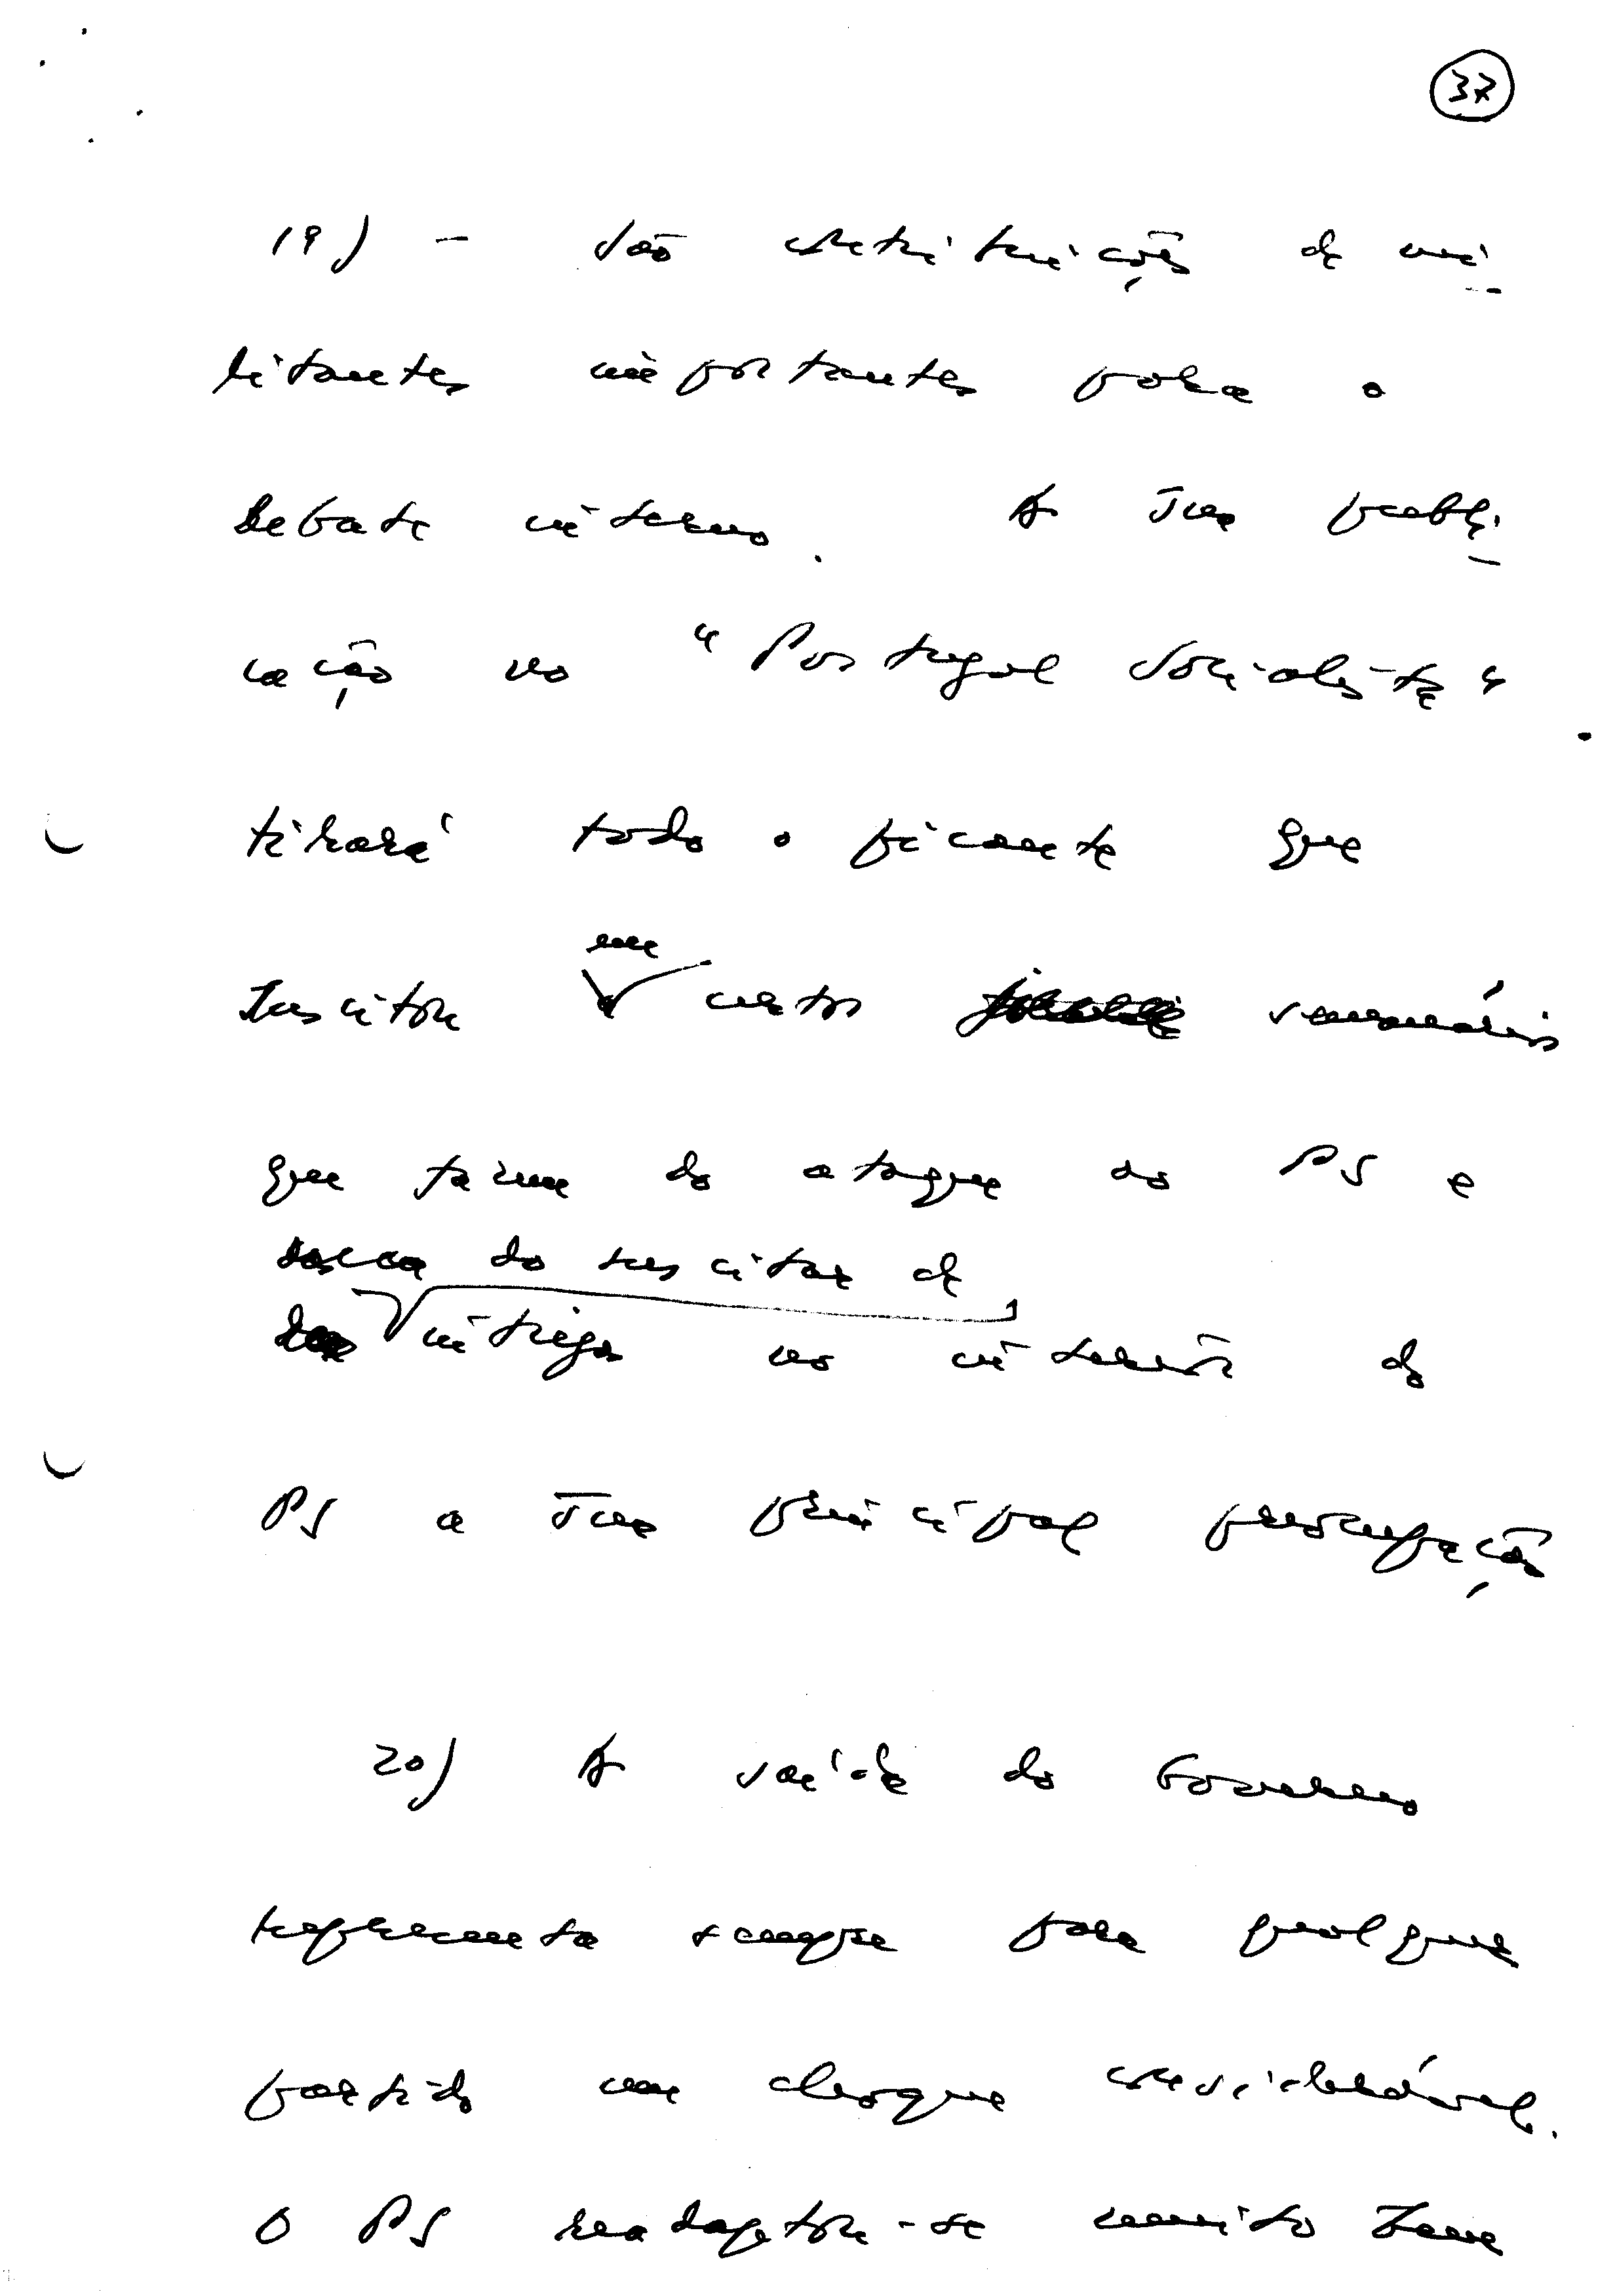 37
19) - São contribuições de mi-
litantes importantes para o
debate interno. A sua publi-
cação no "Portugal Socialista"
tirará todo o picante que
suscitou em certos semanários
que fazem do ataque ao PS e
do suscitar de
intrigas no interior do
PS a sua principal preocupação
20) A saída do Governo
representa sempre para qualquer
partido um choque considerável.
O PS readaptou-se muito bem